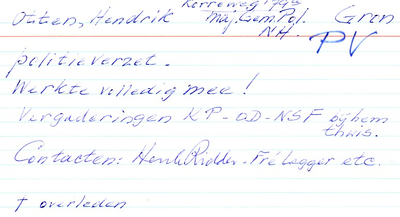 Korreweg 179a
Otten, Hendrik Maj. Gem. Pol. Gron
NH.
PV
politieverzet.
Werkte volledig mee!
Vergaderingen KP-OD-NSF bij hem
thuis.
Contacten: Henk Ridder - Fré Legger etc.
† overleden